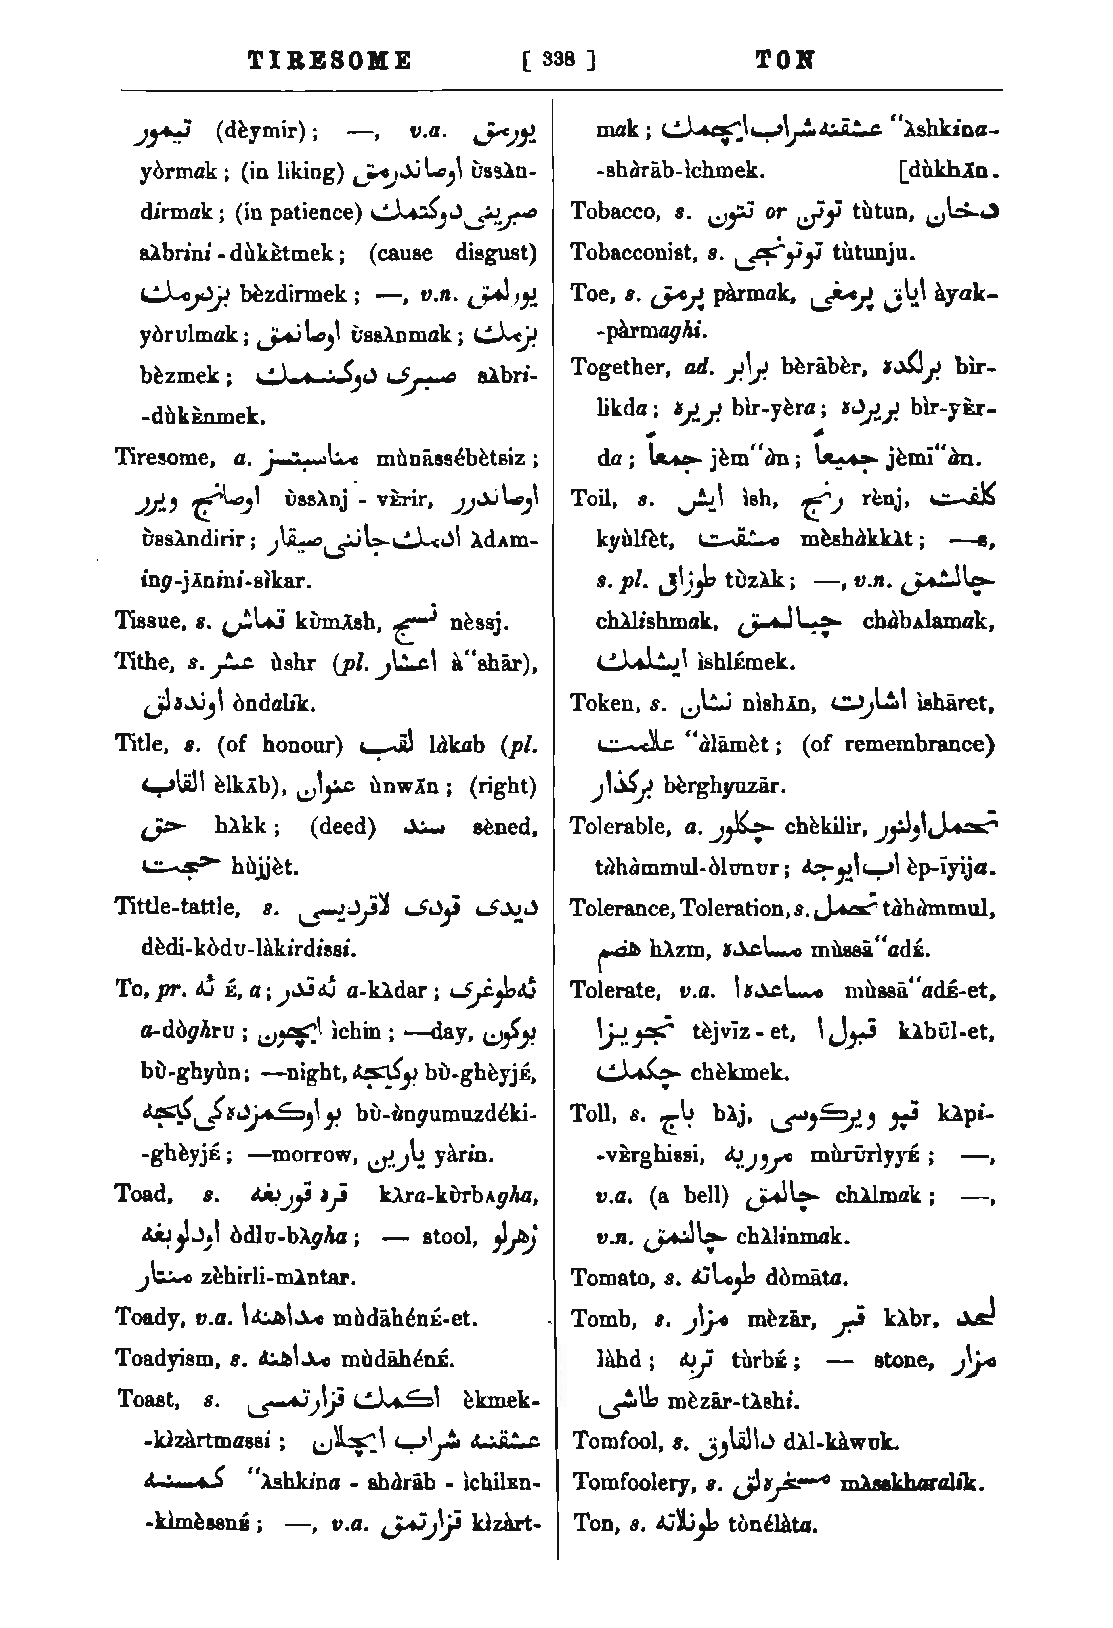 TIRESOME [ 338 ] TON
تیمور (dèymir); —, v.a. یورمق
yòrmak; (in liking) اوصاندرمق ùssλn-
dirmak; (in patience) صبرینی دوكتمك
sλbrini-dùkètmek; (cause disgust)
بزدرمك bèzdirmek; —, v.n. یورلمق
yòrulmak; اوصانمق ùssλnmak; بزمك
bèzmek; صبری دوكنمك sλbri-
-dùkènmek.
Tiresome, a. مناسبتسز mùnāssébètsiz;
اوصانج ویرر ùssλnj-vèrir, اوصاندرر
ùssλndirir; ادمك جاننی صیقار λdᴀm-
ing-jānini-sìkar.
Tissue, s. قماش kùmāsh, نسج nèssj.
Tithe, s. عشر ùshr (pl. اعشار à“shār),
اوندهلق òndalík.
Title, s. (of honour) لقب làkab (pl.
القاب èlkāb), عنوان ùnwān; (right)
حق hλkk; (deed) سند sèned,
حجت hùjjèt.
Tittle-tattle, s. دیدی قودی لاقردیسی
dèdi-kòdu-làkirdissi.
To, pr. نه É, a; نه قدر a-kλdar; نه طوغری
a-dòghru; ایچون ìchin; —day, بوكون
bù-ghyùn; —night, بوكیجه bù-ghèyjÉ,
بو اوكمزدهكی كیجه bù-ùngumuzdéki-
-ghèyjÉ; —morrow, یارین yàrin.
Toad, s. قره قوربغه kλra-kùrbᴀgha,
اودلو بغه òdlu-bλgha; — stool, زهرلو
منتار zèhirli-mλntar.
Toady, v.a. مداهنه ا mùdāhénÉ-et.
Toadyism, s. مداهنه mùdāhénÉ.
Toast, s. اكمك قزارتمسی èkmek-
-kìzàrtmassi; عشقنه شراب ایچلان
كمسنه “λshkina - shàrāb - ìchilᴇn-
-kìmèssnÉ; —, v.a. قزارتمق kìzàrt-
mak; عشقنه شراب ایچمك “λshkina-
-shàrāb-ìchmek. [dùkhān.
Tobacco, s. تتون or توتن tùtun, دخان
Tobacconist, s. توتونجی tùtunju.
Toe, s. پرمق pàrmak, ایاق پرمغی àyak-
-pàrmaghi.
Together, ad. برابر bèrābèr, برلكده bìr-
likda; بریره bìr-yèra; بریرده bìr-yèr-
da; جمعاً jèm“àn; جمیعاً jèmī“àn.
Toil, s. ایش ìsh, رنج rènj, كلفت
kyùlfèt, مشقت mèshàkkλt; —s,
s. pl. طوزاق tùzλk; —, v.n. چالشمق
chλlishmak, چبالمق chàbᴀlamak,
ایشلمك ìshlÉmek.
Token, s. نشان nìshān, اشارت ìshāret,
علامت “àlāmèt; (of remembrance)
بركذار bèrghyuzār.
Tolerable, a. چكلور chèkilir, تحمل اولنور
tàhàmmul-òlunur; اپ ایوجه èp-īyija.
Tolerance, Toleration, s. تحمل tàhàmmul,
هضم hλzm, مساعده mùssā“adÉ.
Tolerate, v.a. مساعده ا mùssā“adÉ-et,
تجویز ا tèjvīz-et, قبول ا kλbūl-et,
چكمك chèkmek.
Toll, s. باج bλj, قپو ویركوسی kλpi-
-vèrghissi, مروریه mùrūrìyyÉ; —,
v.a. (a bell) چالمق chλlmak; —,
v.n. چالنمق chλlinmak.
Tomato, s. طوماته dòmāta.
Tomb, s. مزار mèzār, قبر kλbr, لحد
làhd; تربه tùrbÉ; — stone, مزار
طاشی mèzār-tλshi.
Tomfool, s. دالقاوق dλl-kàwuk.
Tomfoolery, s. مسخرهلق mλsskharalík.
Ton, s. طونلاته tònélàta.